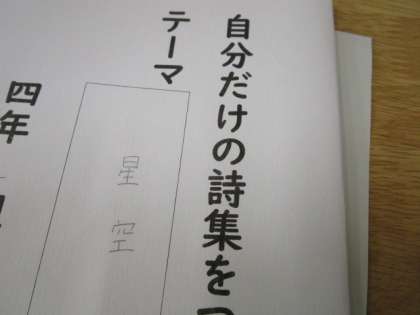 自分だけの詩集を
テーマ
星空
四年